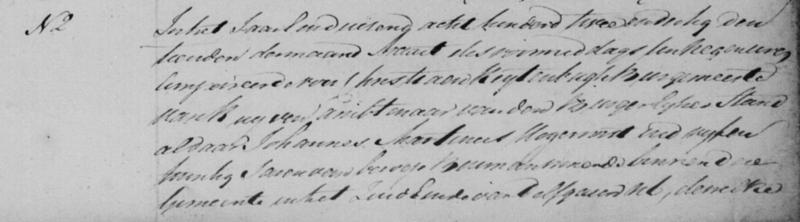 N 2
In het Jaar Een duizend acht honderd twee en dertig den
tienden der maand Maart des voormiddags ten negen uren,
Compareerde voor Christiaan Burgemeester
van Ambtenaar van den Burgerlyken Stand
aldaar Johannes Martinus Hogervorst oud vyf en
Jaren van beroep Bouwman wonende binnen deze
Gemeente in het Zuid Einde van Delfgaauw, dewelke